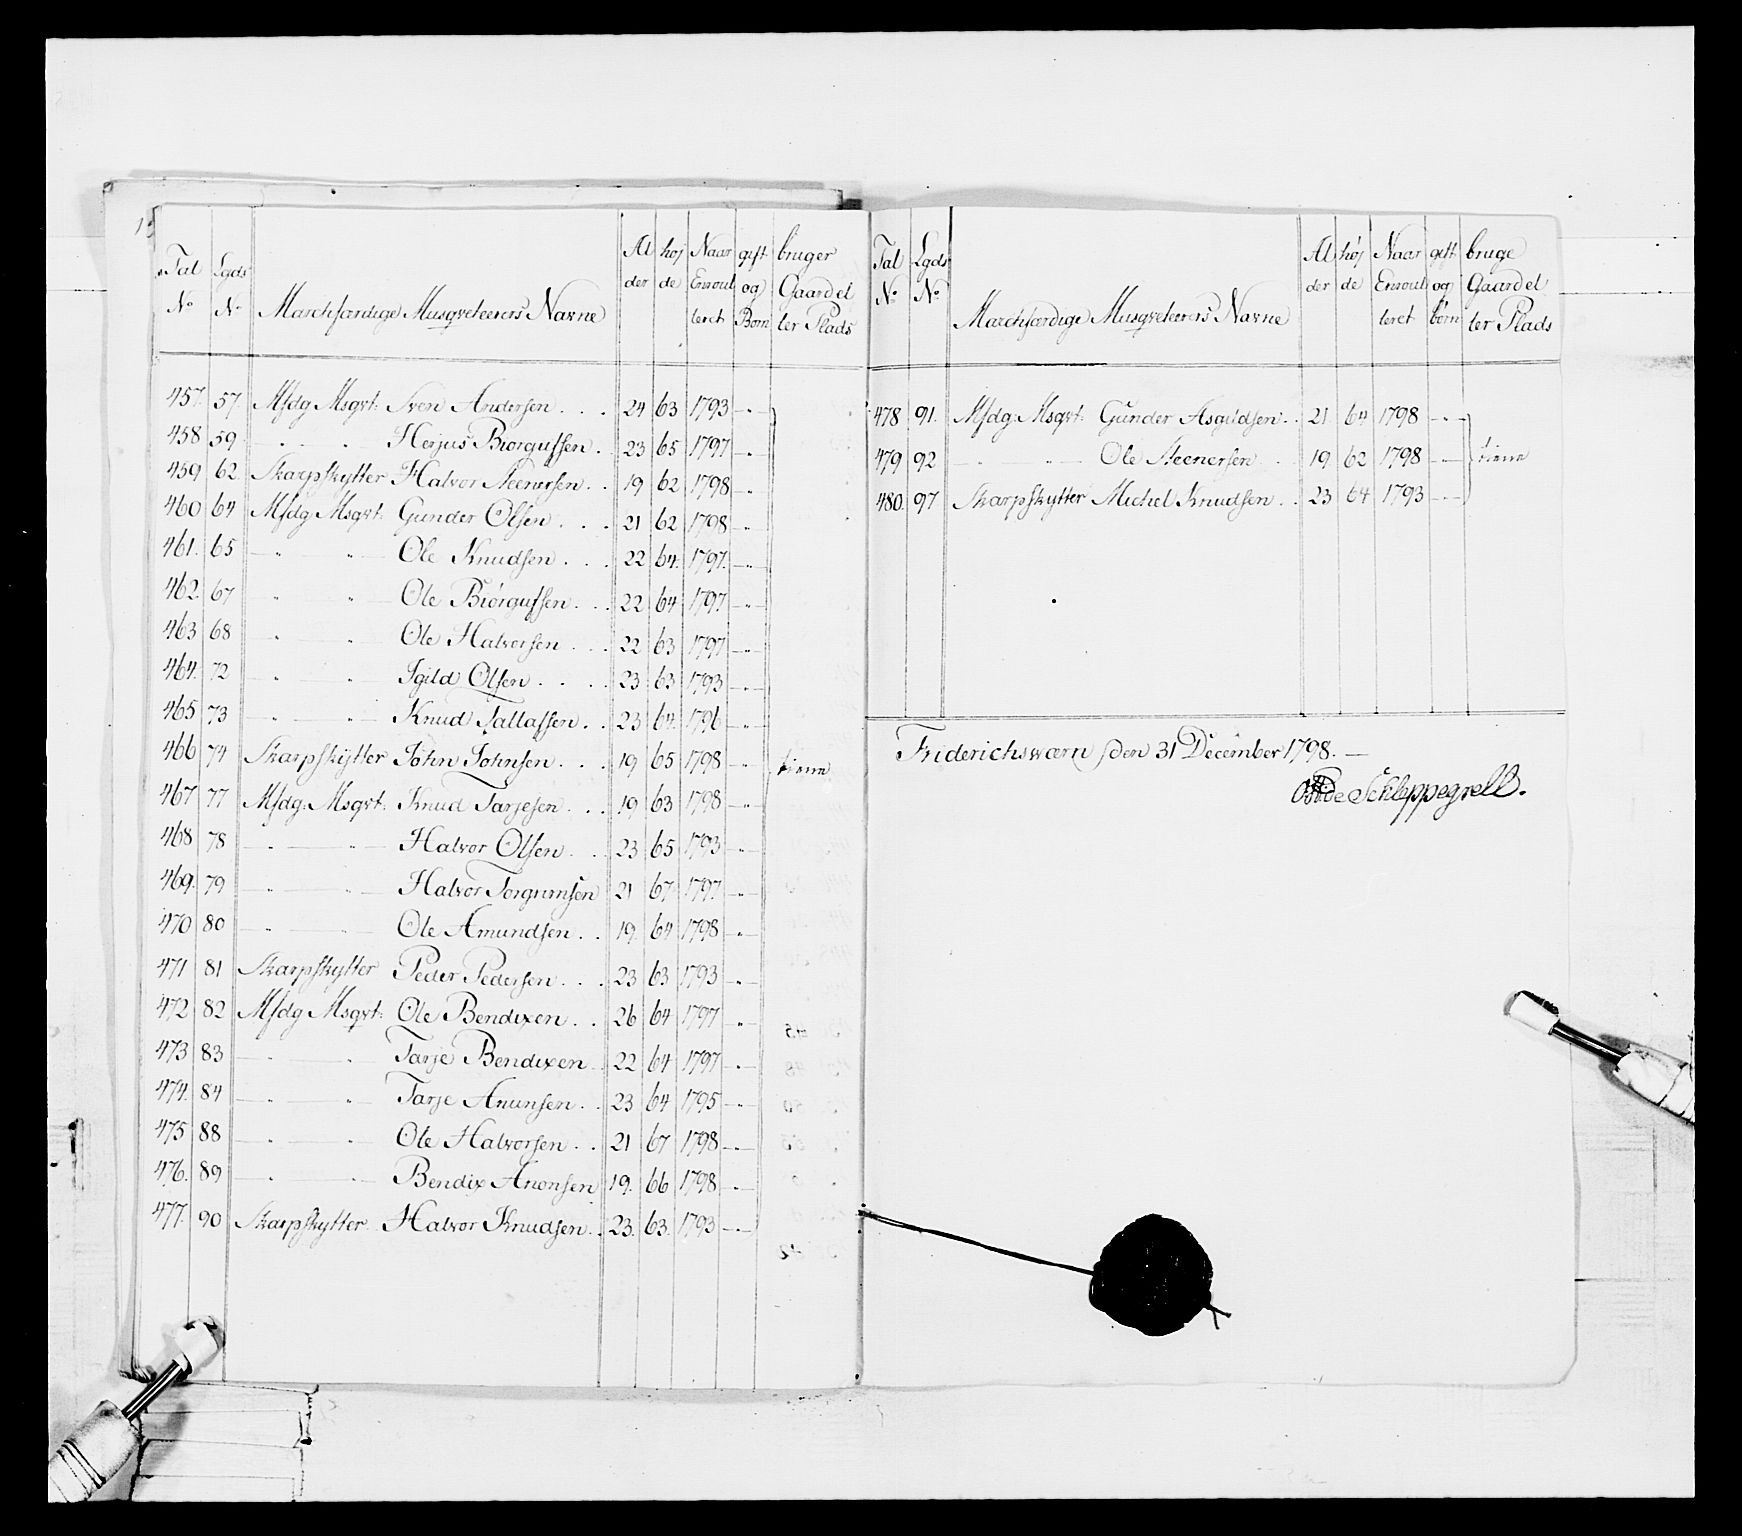 Tal No Lgds No Marchfærdige Musqveteerers Navne Al der høj de Naar Enroul leret gift og Børn bruger Gaard el ler Plads
457. 57. Mfdg Msqvt: Sven Andersen . . . 24 63 1793 - " -
458 59. " " Herjus Biørgufsen . 23 65 1797 - " -
459 62. Skarpskytter Halvor Steenersen . . 19 62 1798 - " -
460 64 Mfdg Msqvt: Gunder Olsen . . . 21 62 1798 - " -
461. 65 " " Ole Knudsen . . . 22 64. 1797. - " -
462. 67 " " Ole Biørgufsen . . . 22 64 1797 - " -
463 68 " " Ole Halvorsen . . . 22 63 1797 - " -
464. 72 " " Igild Olsen . . . . 23 63 1793 - " -
465 73 " " Knud Tallafsen . . 23 64. 1796 - " -
466 74 Skarpskytter John Johnsen . . . 19 65 1798 - " - tienner
467 77 Mfdg. Msqvt: Knud Tarjesen . . . 19 63 1798 - " -
468 78 " " Halvor Olsen . . . 23 65 1793 - " -
469. 79 " " Halvor Torgrimsen 21 67 1797. - " -
470 80 " " Ole Amundsen . . 19. 64 1798 - " -
471 81 Skarpskytter Peder Pedersen . . . 23 63 1793 - " -
472 82 Mfdg Msqvt: Ole Bendixen . . 26 64 1797 - " -
473 83 " " Tarje Bendixen 22 64 1797 - " -
474. 84 " " Tarje Anunsen . . 23 64 1795 - " -
475 88 " " Ole Halvorsen . . 21 67 1798 - " -
476. 89 " " Bendix Anonsen 19. 66 1798 - " -
477. 90 Skarpskytter Halvor Knudsen . . 23. 63. 1793 - " -
Tal No Lgds No Marchfærdige Musqveteerers Navne Al der høj de Naar Enroul leret gift og børn bruge Gaard el ler Plads
478 91. Mfdg: Msqvt: Gunder Asgildsen . . 21. 64 1798 - " -
479 92 " " Ole Steenersen . . 19. 62 1798 - " - tienner
480. 97 Skarpskytter Michel Knudsen . . 23 64 1793 - " -
Friderichsværn den 31 December 1798. —
de Schleppegrell.